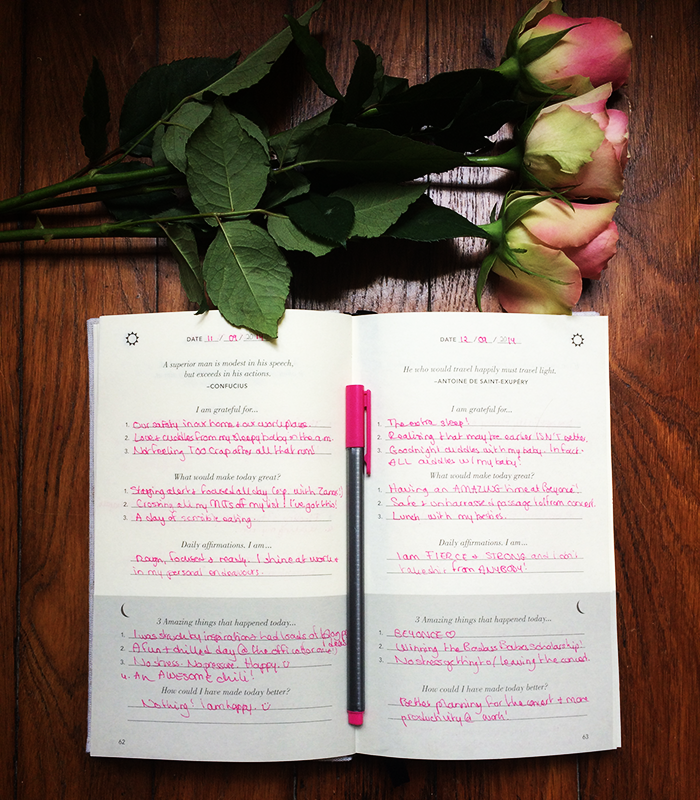 DATE 11 / 09 / 2014
A superior man is modest in his speech,
but exceeds in his actions.
–CONFUCIUS
I am grateful for...
1. Our safety in our home + our workplaces.
2. Love + cuddles from my sleepy baby in the a.m.
3. Not feeling TOO crap after all that rum!
What would make today great?
1. Staying alert + focused all day (esp. with Zane!)
2. Crossing all my MITs off my list! I've got this!
3. A day of sensible eating.
Daily affirmations. I am...
focused + ready. I shine at work +
in my personal endeavours.
3 Amazing things that happened today...
1. I was struck by inspiration + had loads of
2. A fun + chilled day @ the office
3. No stress. No pressure. Happy.
4. An AWESOME chili!
How could I have made today better?
Nothing! I am happy.
62
DATE 12 / 09 / 2014
He who would travel happily must travel light.
–ANTOINE DE SAINT-EXUPÉRY
I am grateful for...
1. The extra sleep!
2. Realising that maybe earlier ISN'T better.
3. Goodnight cuddles with my baby. In fact -
ALL cuddles w/ my baby!
What would make today great?
1. Having an AMAZING time at Beyoncé!
2. Safe + unharrassed passage to + from concert.
3. Lunch with my besties.
Daily affirmations. I am...
I am FIERCE + STRONG and I don't
take sh* from ANYBODY!
3 Amazing things that happened today...
1. BEYONCE ♡
2. Winning the Badass Babes scholarship!
3. No stress getting to / leaving the concert.
How could I have made today better?
Better planning for the concert + more
productivity @ work!
63